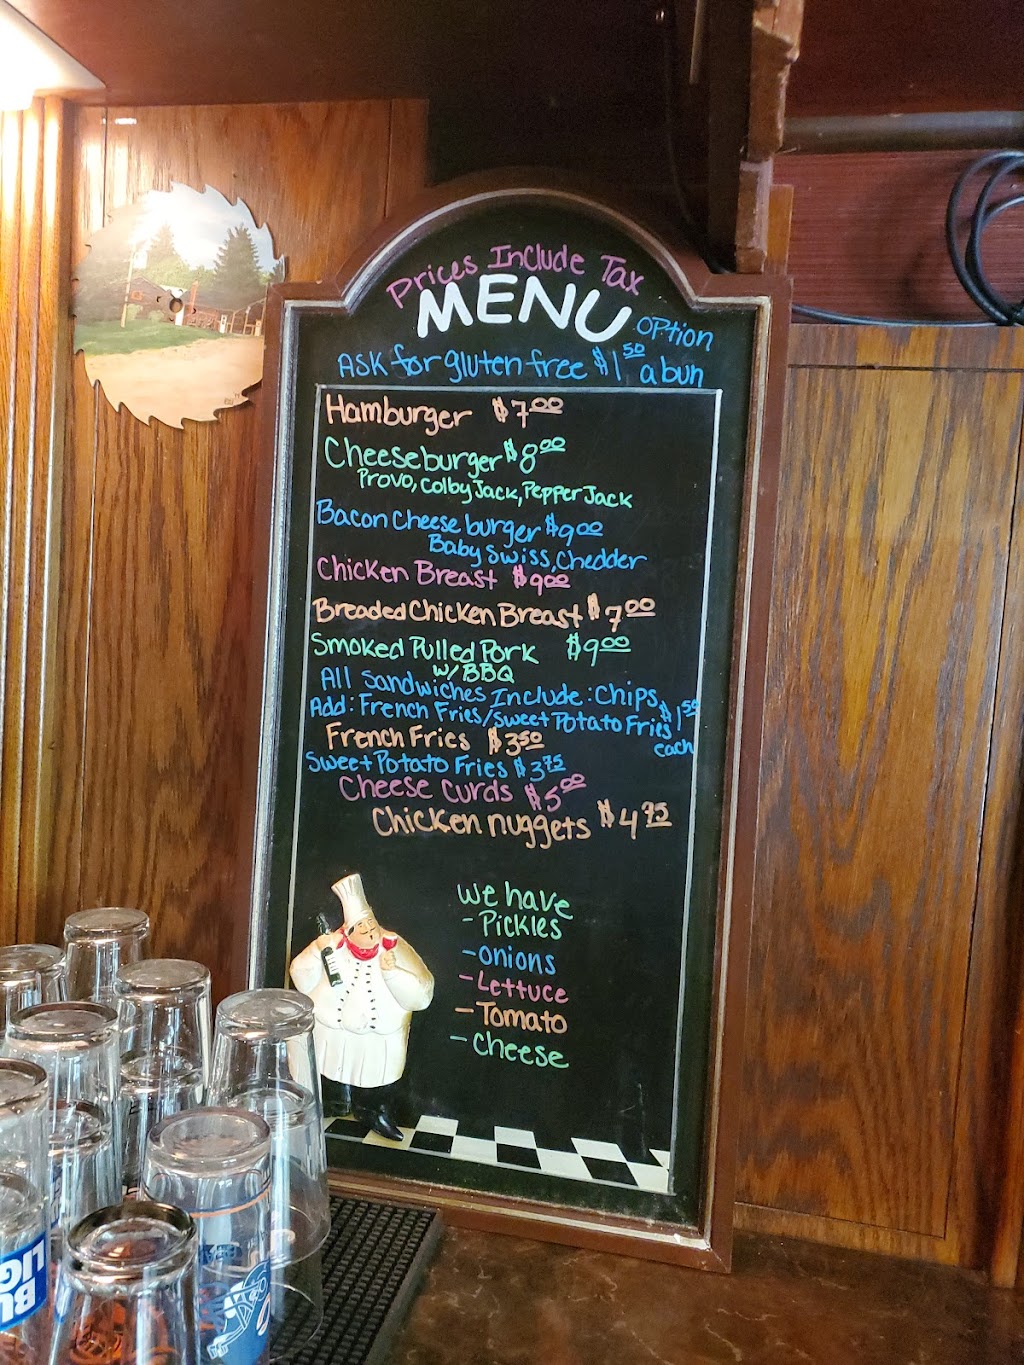 Prices Include Tax
MENU
Option
Ask for gluten free $1.50 a bun
Hamburger $7.00
Cheeseburger $8.00
Provo, Colby Jack, Pepper Jack
Bacon Cheese burger $9.00
Baby Swiss, Chedder
Chicken Breast $9.00
Breaded Chicken Breast $7.00
Smoked Pulled Pork $9.00
w/ BBQ
All Sandwiches Include: Chips
Add: French Fries/Sweet Potato Fries $1.50
each
French Fries $3.50
Sweet Potato Fries $3.75
Cheese Curds $5.00
Chicken nuggets $4.75
We have
- Pickles
- Onions
- Lettuce
- Tomato
- Cheese
BUD
LIGHT